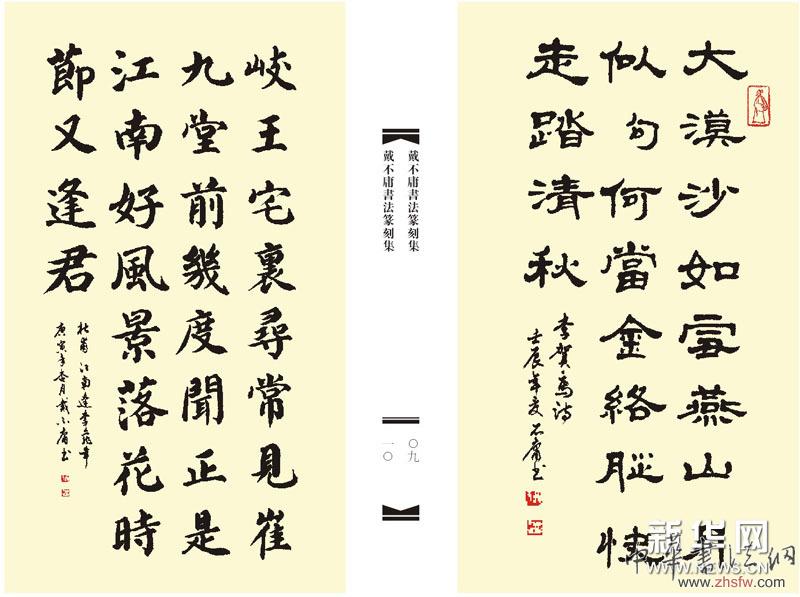 大漠沙如雪燕山月
似句何當金絡腦快
走踏清秋
李賀馬詩
壬辰年夏不庸书
戴不庸書法篆刻集
戴不庸書法篆刻集
〇九
一〇
岐王宅裏尋常見崔
九堂前幾度聞正是
江南好風景落花時
節又逢君
杜甫江南逢李龜年
庚寅年杏月戴不庸书
新华网
WWW.NEWS.CN
www.zhsfw.com